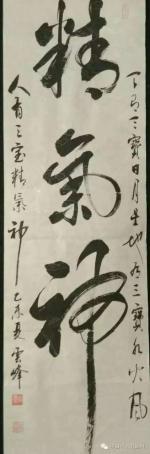 天有三寶日月星地有三寶水火風
精氣神
人有三寶精氣神乙未夏雲峰